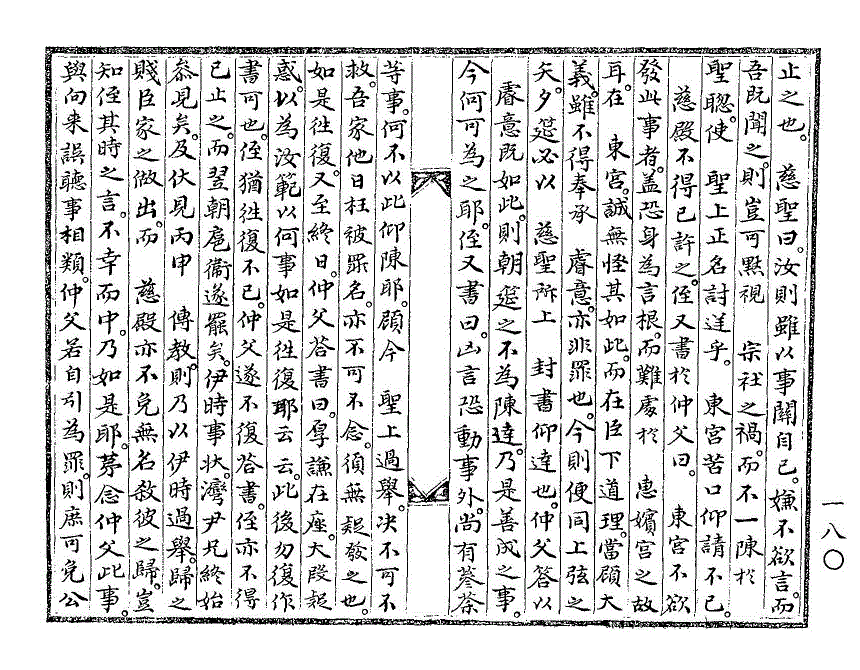 止之也。 慈聖曰。汝則雖以事關自己。嫌不欲言。而
吾旣聞之。則豈可黙視 宗社之禍。而不一陳於
聖聰。使 聖上正名討逆乎。 東宮苦口仰請不已。
慈殿不得已許之。侄又書於仲父曰。 東宮不欲
發此事者。盖恐身為言根。而難處於 惠嬪宮之故
耳。在 東宮。誠無怪其如此。而在臣下道理。當顧大
義。雖不得奉承 睿意。亦非罪也。今則便同上弦之
矢。夕筵必以 慈聖所上 封書仰達也。仲父答以
睿意旣如此。則朝筵之不為陳達。乃是善成之事。
今何可為之耶。侄又書曰。凶言恐動事外。尙有蔘茶
等事。何不以此仰陳耶。顧今 聖上過擧。決不可不
救。吾家他日枉被罪名。亦不可不念。須無疑發之也。
如是徃復。又至終日。仲父答書曰。厚謙在座。大段疑
惑。以為汝範以何事如是徃復耶云云。此後勿復作
書可也。侄猶徃復不已。仲父遂不復答書。侄亦不得
已止之。而翌朝扈衛遂罷矣。伊時事狀。灣尹兄終始
叅見矣。及伏見丙申 傳教。則乃以伊時過擧。歸之
賤臣家之做出。而 慈殿亦不免無名救彼之歸。豈
知侄其時之言。不幸而中。乃如是耶。第念仲父此事。
與向來誤聽事相類。仲父若自引為罪。則庶可免公
一八〇